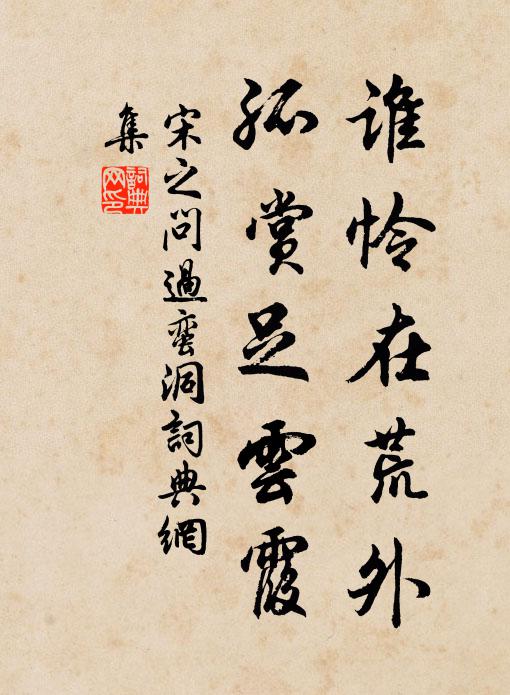 谁怜在荒外
孤賞足雲霞
宋之问過蛮洞詞典網
集
詞典
网印